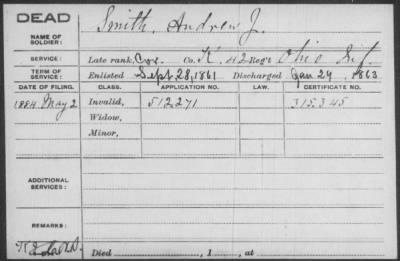 DEAD
NAME OF SOLDIER: Smith, Andrew J.
SERVICE: Late rank, Cor. Co. K, 42 Reg't Ohio Inf.
TERM OF SERVICE: Enlisted Sept. 28, 1861 Discharged Jan 29, 1863
DATE OF FILING. CLASS. APPLICATION NO. LAW. CERTIFICATE NO.
1884 May 2 Invalid, 512,271 315,345
Widow,
Minor,
ADDITIONAL SERVICES:
REMARKS:
Died , 1 , at